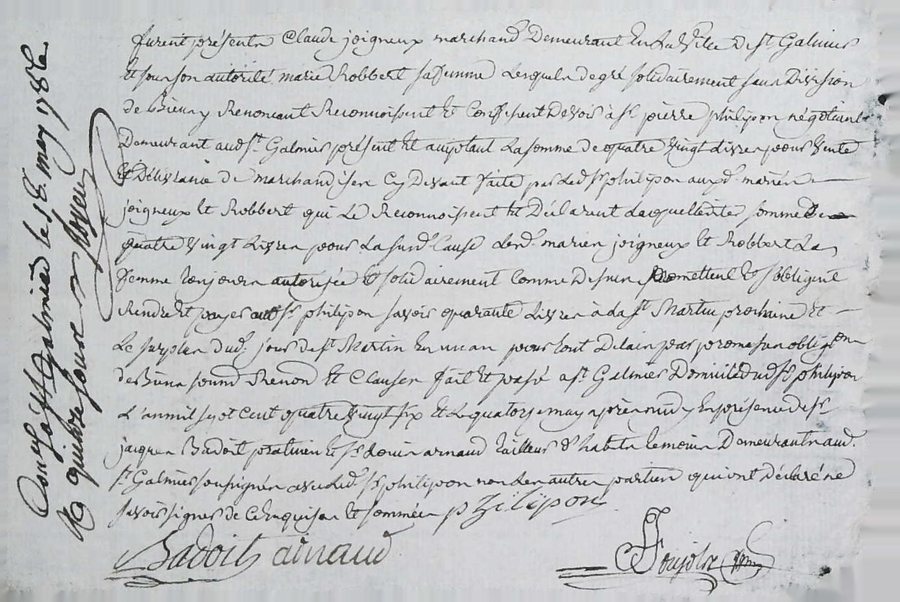 furent présents Claude joigneux marchand Demeurant En La Ville de St Galmier
Et sous son autorité marie Robbert sa femme Lesquels de gré solidairement sans Division
de Biens y Renoncant Reconnoissent Et Confessent Devoir a Sr pierre philipon négotiant
Demeurant aud. St Galmier présent Et acceptant La somme de quatre vingt Livres pour Vente
Et Délivrance de marchandises Cy Devant faite par Led. Sr philipon auxd. mariés
joigneux Et Robbert qui Le Reconnoissent Et Déclarent Laquelle ditte somme De
quatre vingt Livres pour La susd. Cause Lesd. mariés joigneux Et Robbert La
femme toujours autorisée Et solidairement Comme Dessus promettent Et s'obligent
Rendre Et payer aud. Sr philipon savoir quarante Livres à La St Martin prochaine Et
Le surplus dud. jour de St Martin En un an pour tout Delais par promesses oblig.on
de Biens soum. Renon. Et Clauses fait Et passé a St Galmier Domicile dud. Sr philipon
L'an mil sept Cent quatre vingt six Et Le quatorze may après midy En présence de Sr
jacques Badoit praticien Et Sr Louis arnaud tailleur d'habits temoins Demeurants aud.
St Galmier soussignés avec Led. Sr philipon non Les autres parties qui ont Déclaré ne
savoir signer de Ce Enquises Et sommées philipon
Badoit arnaud
Conlé a St Galmier le 18 may 1786
R quinze sous